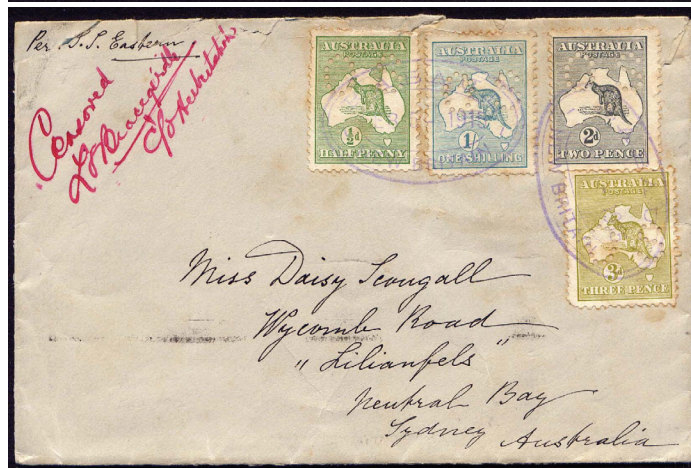 Per S.S. Eastern
Censored
AUSTRALIA
POSTAGE
½d
HALFPENNY
AUSTRALIA
POSTAGE
1/-
ONE SHILLING
AUSTRALIA
POSTAGE
2d
TWO PENCE
AUSTRALIA
POSTAGE
3d
THREE PENCE
1915
Miss Daisy Scougall
Wycomb Road
"Lilianfels"
Neutral Bay
Sydney Australia